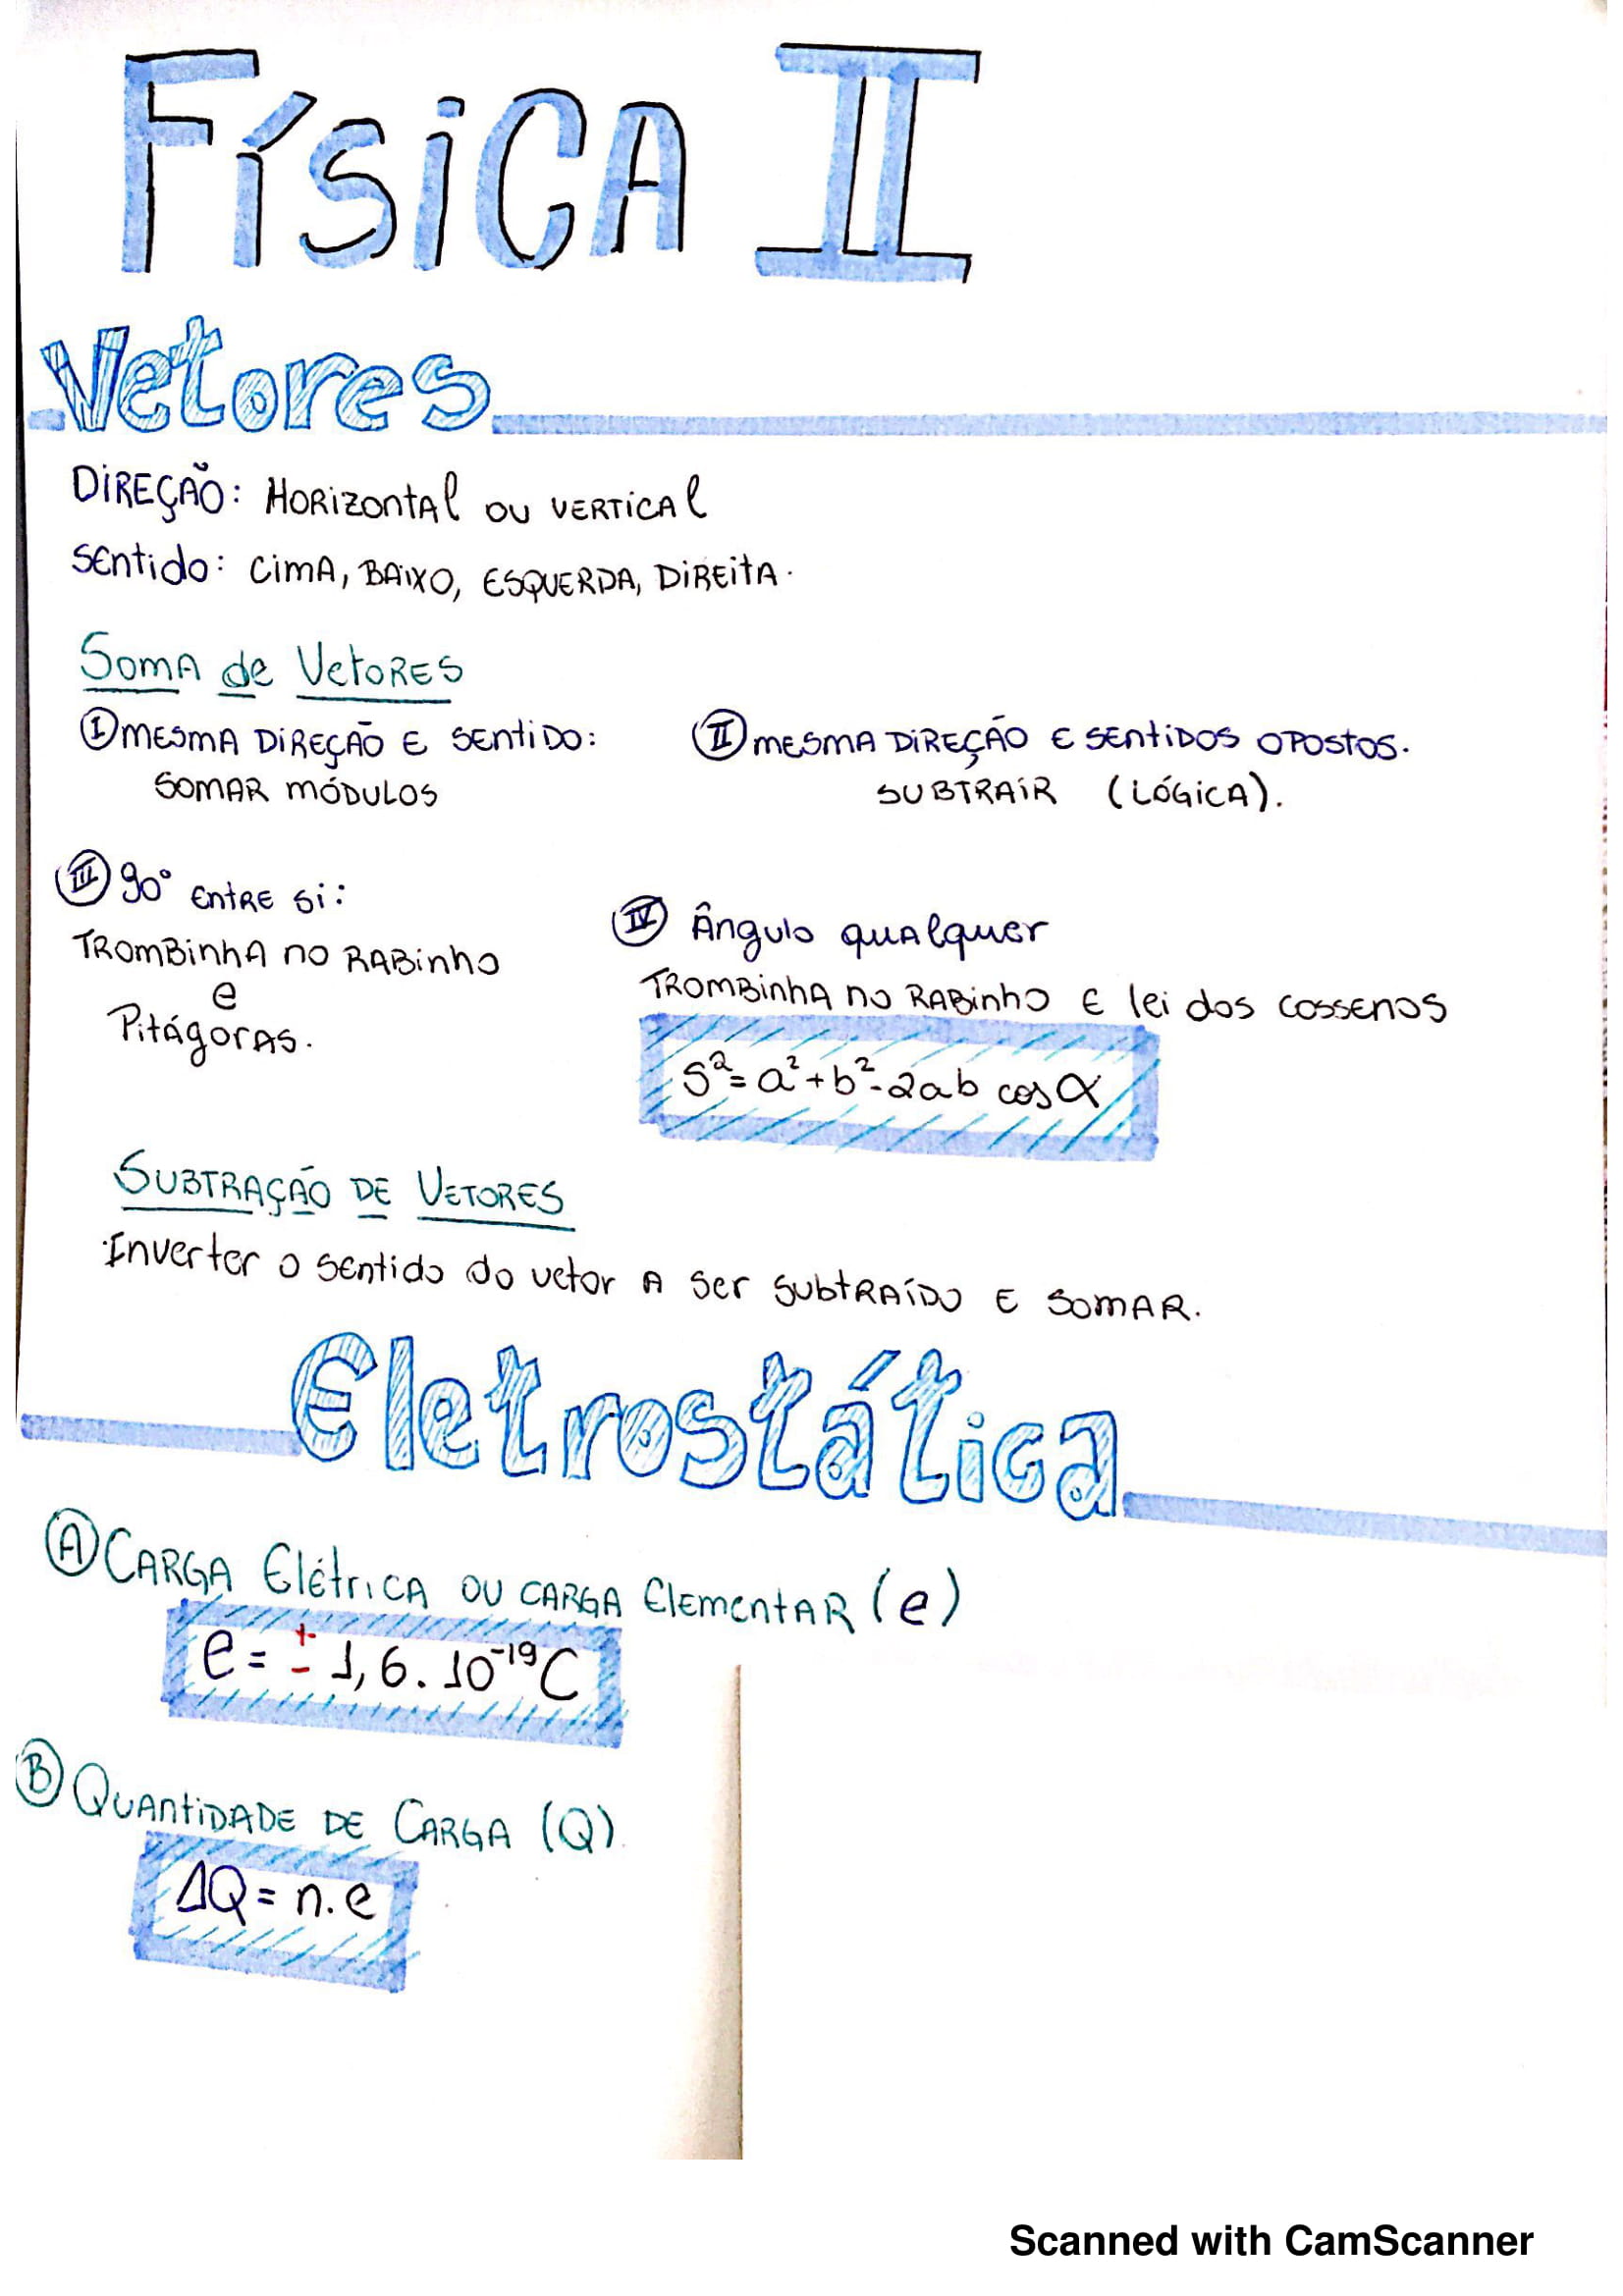 FÍSiCA II
Vetores
DiREÇÃO: HORizontAl ou VERTiCAl
SEntido: CimA, BAiXO, ESQUERDA, DiREitA.
SomA de VetoRES
I MESMA DiREÇÃO E SEntiDO:
SOMAR MÓDULOS
II MESMA DiREÇÃO E SEntiDOS OPOStOS.
SUBTRAiR (LÓGiCA).
III 90° EntRE Si:
TROMBinhA no RABinho
e
PitágorAS.
IV Ângulo quAlquer
TROMBinhA no RABinho E lei dos cossenos
S²= a²+b²-2ab cos α
SUBTRAÇÃO DE VETORES
·Inverter o sentido do vetor A ser SubtRAÍDO E SOMAR.
Eletrostática
A CARGA ElétriCA OU CARGA ElementAR (e)
e = ± 1,6.10⁻¹⁹C
B QUAntiDADE DE CARGA (Q).
ΔQ = n.e
Scanned with CamScanner